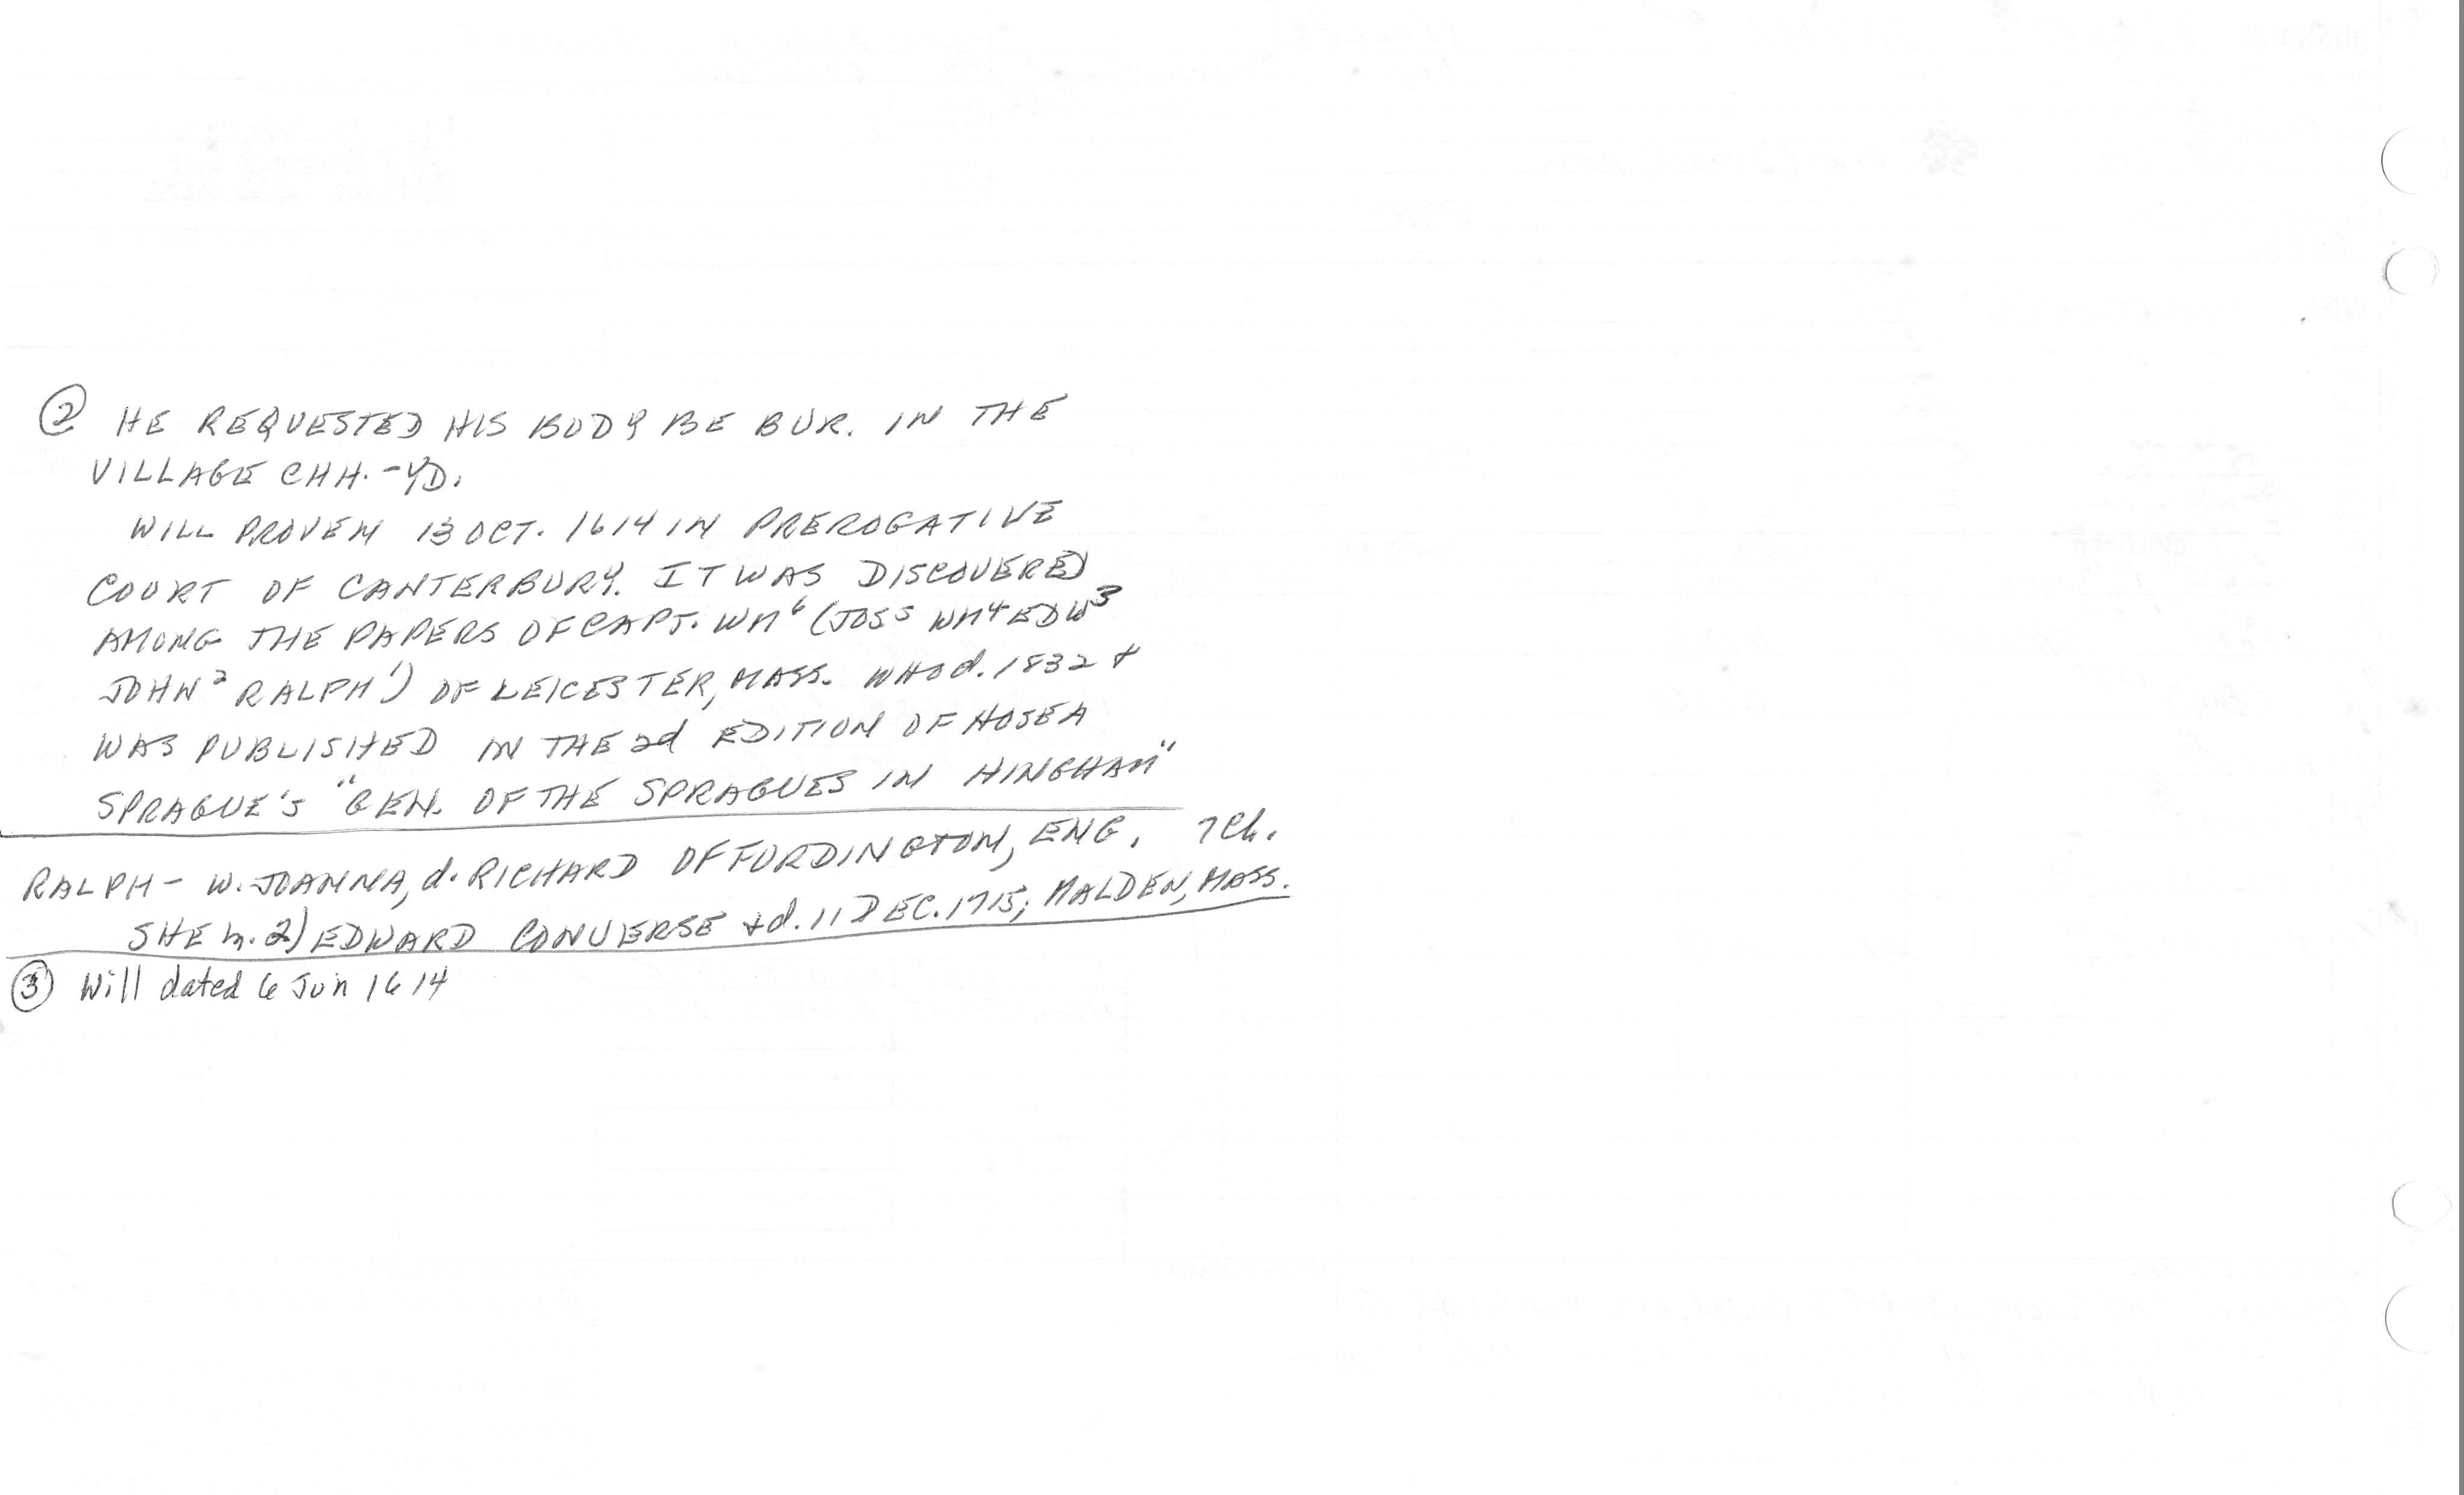 ② HE REQUESTED HIS BODY BE BUR. IN THE
VILLAGE CHH.-YD.
WILL PROVEN 13 OCT. 1614 IN PREROGATIVE
COURT OF CANTERBURY. IT WAS DISCOVERED
AMONG THE PAPERS OF CAPT. WM⁶ (JOS⁵ WM⁴ EDW³
JOHN² RALPH¹) OF LEICESTER, MASS. WHO d. 1832 +
WAS PUBLISHED IN THE 2d EDITION OF HOSEA
SPRAGUE'S "GEN. OF THE SPRAGUES IN HINGHAM"
RALPH - W. JOANNA, d. RICHARD OF FORDINGTON, ENG. 7 Ch.
SHE m. 2) EDWARD CONVERSE + d. 11 DEC. 1715; MALDEN, MASS.
③ Will dated 6 Jun 1614